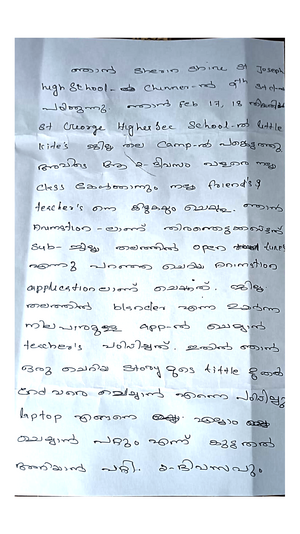 ഞാൻ Sherin Shine St Joseph
high School-ൽ Chunner-ൽ 9th std-ൽ
പഠിക്കുന്നു ഞാൻ Feb 17, 18
St George Higher Sec School-ൽ little
kite's ജില്ലാ തല Camp-ൽ പങ്കെടുത്തു
അവിടെ ആ 2-ദിവസം വളരെ നല്ല
Class കേൾക്കാനും നല്ല friend's
teacher's നെ കിട്ടുകയും ചെയ്തു. ഞാൻ
Animation-ലാണ്
Sub-ജില്ലാ തലത്തിൽ open
എന്നു പറഞ്ഞ ചെറിയ Animation
application ലാണ് ചെയ്തത്. ജില്ലാ
തലത്തിൽ blander എന്ന ഉയർന്ന
നിലവാരമുള്ള app-ൽ ചെയ്യാൻ
teacher's പഠിപ്പിച്ചത്. ഇതിൽ ഞാൻ
ഒരു ചെറിയ story യുടെ tittle മുതൽ
end വരെ ചെയ്യാൻ എന്നെ പഠിപ്പിച്ചു
laptop എങ്ങനെ എല്ലാം
ചെയ്യാൻ പറ്റും എന്ന് കൂടുതൽ
അറിയാൻ പറ്റി. 2-ദിവസവും